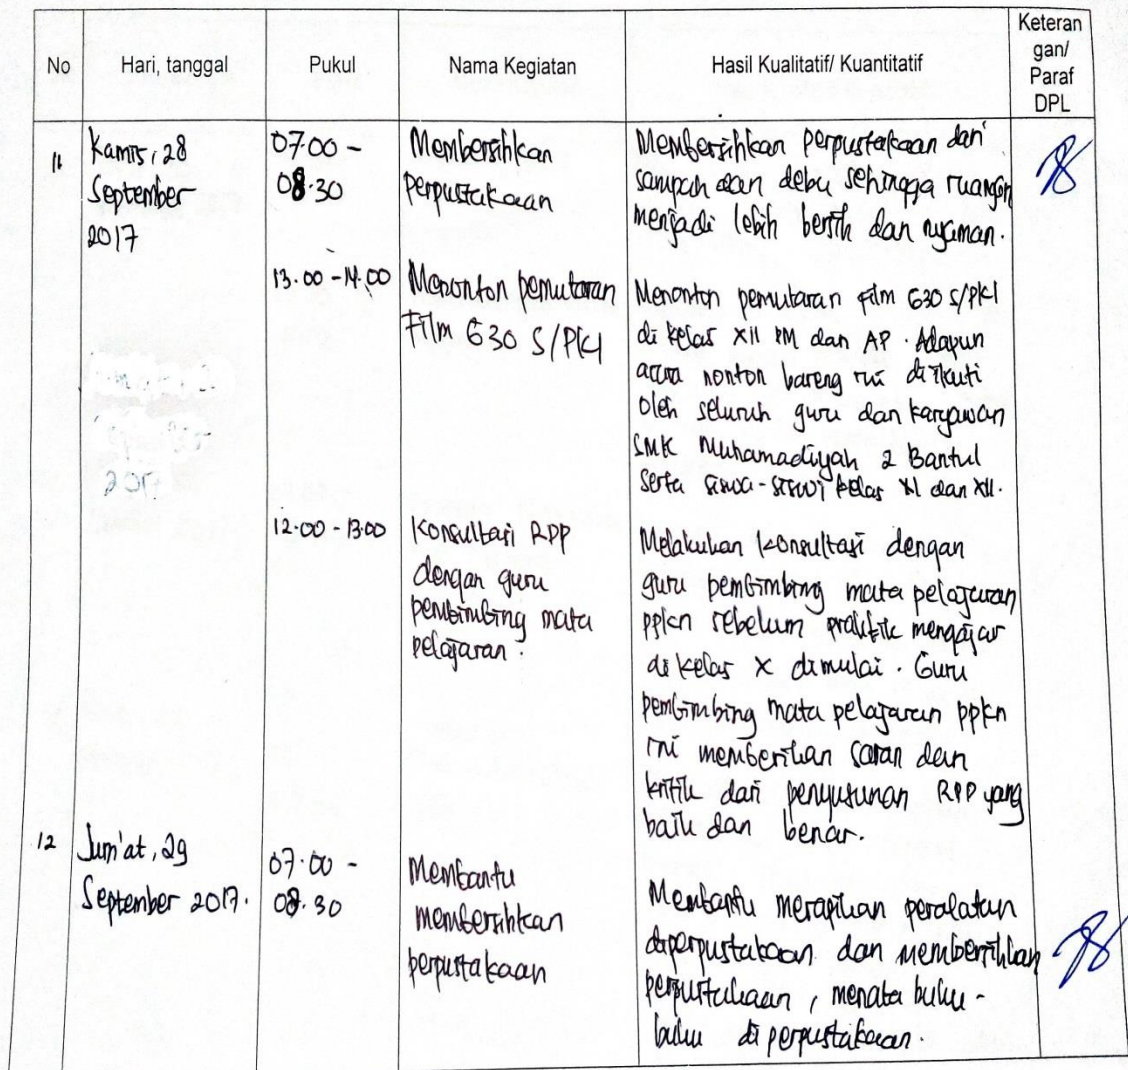 No Hari, tanggal Pukul Nama Kegiatan Hasil Kualitatif/ Kuantitatif Keteran
gan/
Paraf
DPL
11 Kamis, 28
September
2017
07.00 -
08.30
Membersihkan
perpustakaan
Membersihkan perpustakaan dari
sampah dan debu sehingga ruangan
menjadi lebih bersih dan nyaman.
13.00 - 14.00
Menonton pemutaran
Film G30 S/PKI
Menonton pemutaran film G30 S/PKI
di kelas XII PM dan AP. Adapun
acara nonton bareng ini diikuti
oleh seluruh guru dan karyawan
SMK Muhamadiyah 2 Bantul
serta siswa-siswi kelas XI dan XII.
12.00 - 13.00
Konsultasi RPP
dengan guru
pembimbing mata
pelajaran.
Melakukan konsultasi dengan
guru pembimbing mata pelajaran
ppkn sebelum praktik mengajar
di kelas X dimulai. Guru
pembimbing mata pelajaran ppkn
ini memberikan saran dan
kritik dari penyusunan RPP yang
baik dan benar.
12 Jum'at, 29
September 2017.
07.00 -
08.30
Membantu
membersihkan
perpustakaan
Membantu merapikan peralatan
diperpustakaan dan membersihkan
perpustakaan, menata buku-
buku di perpustakaan.